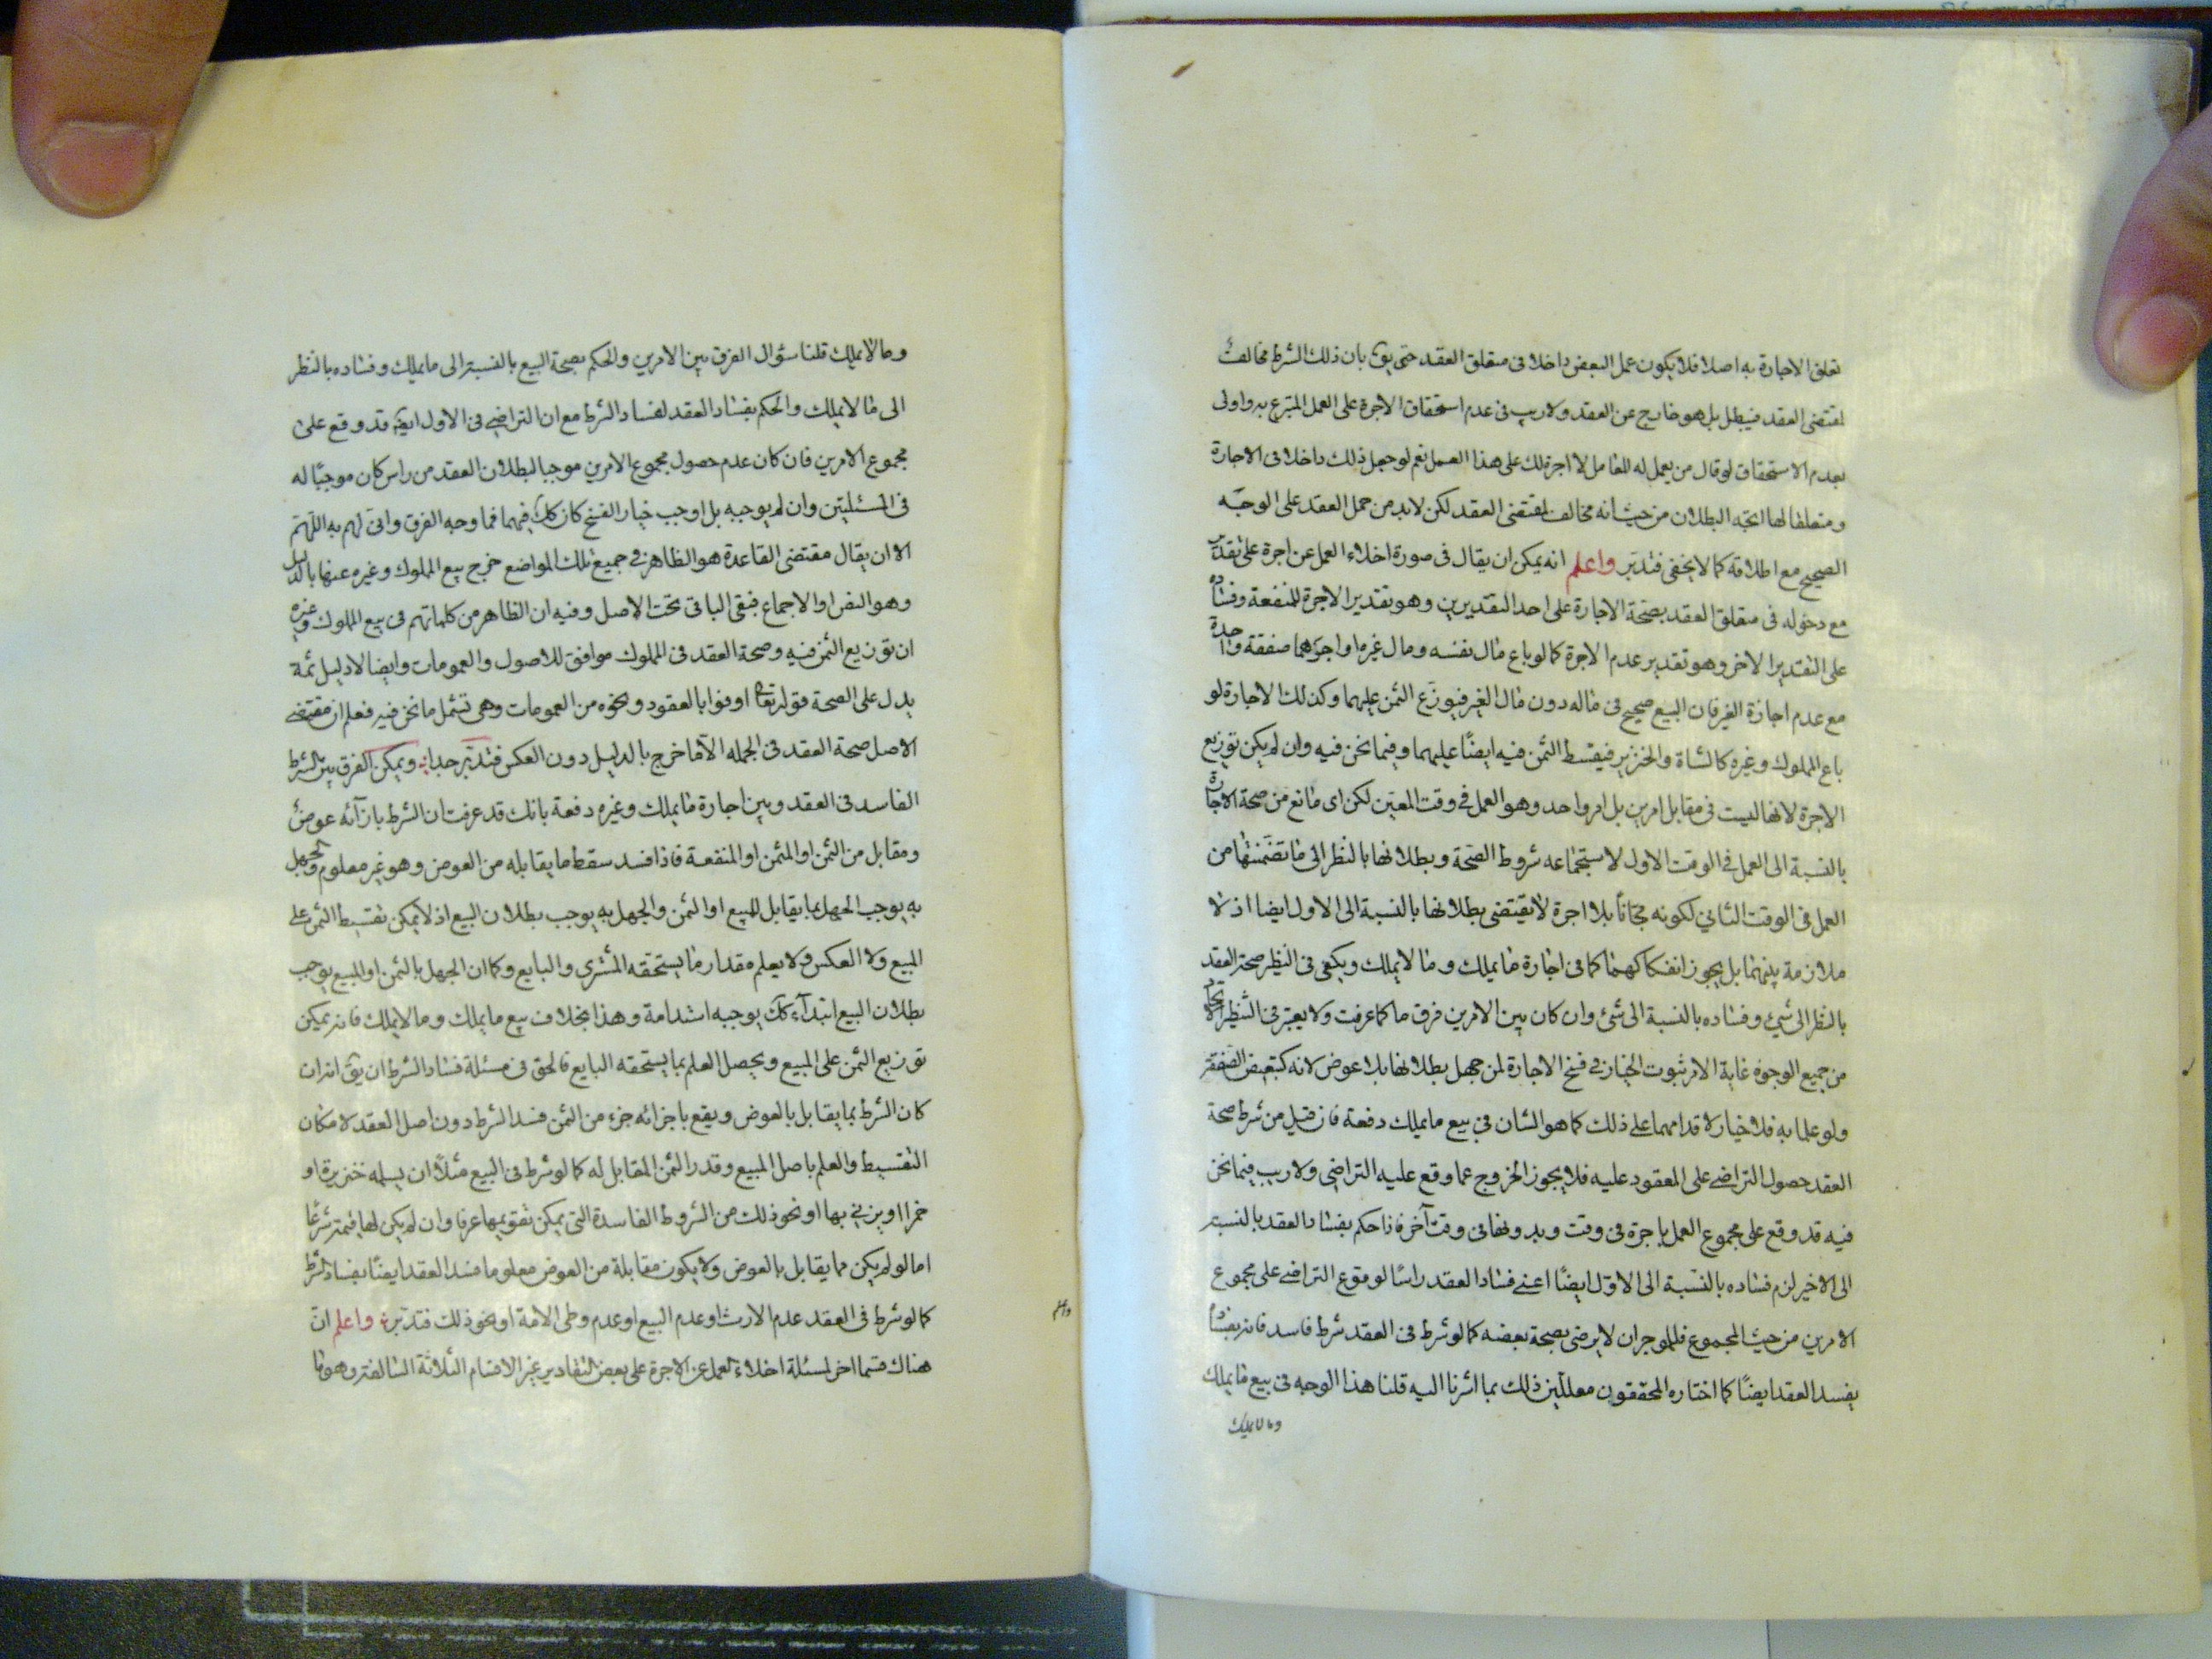 تعلق الاجارة به اصلا فلا يكون عمل البعض داخلا فى متعلق العقد حتى يق بان ذلك الشرط مخالف
لمقتضى العقد فيبطل بل هو خارج عن العقد ولا ريب فى عدم استحقاق الاجرة على العمل المتبرع به واولى
بعدم الاستحقاق لو قال من يعمل له للعامل لا اجرة لك على هذا العمل نعم لو جعل ذلك داخلا فى الاجارة
ومتعلقا لها اتجه البطلان من حيث انه مخالف لمقتضى العقد لكن لابد من حمل العقد على الوجه
الصحيح مع اطلاقه كما لا يخفى فتدبر واعلم انه يمكن ان يقال فى صورة اخلاء العمل عن اجرة على تقدير
مع دخوله فى متعلق العقد بصحة الاجارة على احد التقديرين وهو تقدير الاجرة للمنفعة وفساده
على التقدير الاخر وهو تقدير عدم الاجرة كما لو باع مال نفسه ومال غيره او اجرهما صفقة واحدة
مع عدم اجازة الغير فان البيع صحيح فى ماله دون مال الغير فيوزع الثمن عليهما وكذلك الاجارة لو
باع المملوك وغيره كالشاة والخنزير فيقسط الثمن فيه ايضًا عليهما وفيما نحن فيه وان لم يكن توزيع
الاجرة لانها ليست فى مقابل امرين بل امر واحد وهو العمل فى وقت المعين لكن اى مانع من صحة الاجارة
بالنسبة الى العمل فى الوقت الاول لاستجماعه شروط الصحة وبطلانها بالنظر الى ما تضمنتها من
العمل فى الوقت الثانى لكونه مجانًا بلا اجرة لا يقتضى بطلانها بالنسبة الى الاول ايضا اذ لا
ملازمة بينهما بل يجوز انفكاكهما كما فى اجارة ما يملك وما لا يملك ويكفى فى النظير صحة العقد
بالنظر الى شىء وفساده بالنسبة الى شئ وان كان بين الامرين فرق ما كما عرفت ولا يعتبر فى التنظير الاتحاد
من جميع الوجوه غاية الامر ثبوت الخيار فى فسخ الاجارة لمن جهل بطلانها بلا عوض لانه كتبعيض الصفقة
ولو علما به فلا خيار لاقدامهما على ذلك كما هو الشان فى بيع ما يملك دفعة فان قيل من شرط صحة
العقد حصول التراضى على المعقود عليه فلا يجوز الخروج عما وقع عليه التراضى ولا ريب فيما نحن
فيه قد وقع على مجموع العمل باجرة فى وقت وبدونها فى وقت آخر فاذا حكم بفساد العقد بالنسبة
الى الاخير لزم فساده بالنسبة الى الاول ايضًا اعنى فساد العقد راسًا لوقوع التراضى على مجموع
الامرين من حيث المجموع فللموجر ان لا يرضى بصحة بعضه كما لو شرط فى العقد شرط فاسد فانه بفساده
يفسد العقد ايضًا كما اختاره المحققون معللين ذلك بما اشرنا اليه قلنا هذا الوجه فى بيع ما يملك
وما لا يملك
وما لا يملك قلنا سؤال الفرق بين الامرين والحكم بصحة البيع بالنسبة الى ما يملك وفساده بالنظر
الى ما لا يملك والحكم بفساد العقد لفساد الشرط مع ان التراضى فى الاول ايضا قد وقع على
مجموع الامرين فان كان عدم حصول مجموع الامرين موجبا لبطلان العقد من راس كان موجبًا له
فى المسئلتين وان لم يوجبه بل اوجب خيار الفسخ كان كك فيهما فما وجه الفرق وانى لهم به اللهم
الا ان يقال مقتضى القاعدة هو الظاهر فى جميع تلك المواضع خرج بيع المملوك وغيره عنها بالدليل
وهو النص او الاجماع فبقى الباقى تحت الاصل وفيه ان الظاهر من كلماتهم فى بيع المملوك وغيره
ان توزيع الثمن فيه وصحة العقد فى المملوك موافق للاصول والعمومات وايضا لا دليل ثمة
يدل على الصحة قوله تعا اوفوا بالعقود ونحوه من العمومات وهى تشمل ما نحن فيه فعلم ان مقتضى
الاصل صحة العقد فى الجمله الا ما خرج بالدليل دون العكس فتدبر جدا ويمكن الفرق بين الشرط
الفاسد فى العقد وبين اجارة ما يملك وغيره دفعة بانك قد عرفت ان الشرط بازآئه عوض
ومقابل من الثمن او المثمن او المنفعة فاذا فسد سقط ما يقابله من العوض وهو غير معلوم والجهل
به يوجب الجهل بما يقابل المبيع او الثمن والجهل به يوجب بطلان البيع اذ لا يمكن تقسيط الثمن على
المبيع ولا العكس ولا يعلم مقدار ما يستحقه المشترى والبايع وكما ان الجهل بالثمن او المبيع يوجب
بطلان البيع ابتدآء كك يوجبه استدامة وهذا بخلاف بيع ما يملك وما لا يملك فانه يمكن
توزيع الثمن على المبيع ويحصل العلم بما يستحقه البايع فالحق فى مسئلة فساد الشرط ان يق انه ان
كان الشرط بما يقابل بالعوض ويقع باجزائه جزء من الثمن فسد الشرط دون اصل العقد لامكان
التقسيط والعلم باصل المبيع وقدر الثمن المقابل له كما لو شرط فى البيع مثلاً ان يسلمه خنزيرة او
خمرا او يزنى بها او نحو ذلك من الشروط الفاسدة التى يمكن تقويمها عرفا وان لم يكن لها قيمة شرعًا
اما لو لم يكن مما يقابل بالعوض ولا يكون مقابلة من العوض معلوما فسد العقد ايضًا بفساد الشرط
كما لو شرط فى العقد عدم الارث او عدم البيع او عدم وطى الامة او نحو ذلك فتدبر واعلم ان
هناك قسما اخر لمسئلة اخلاء العمل عن الاجرة على بعض التقادير غير الاقسام الثلاثة السالفة وهو ما